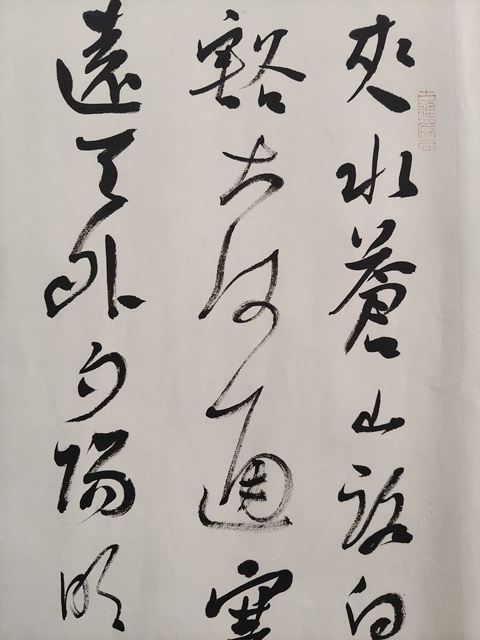 夾水蒼山路向
豁大河通寒
遠天外夕陽明